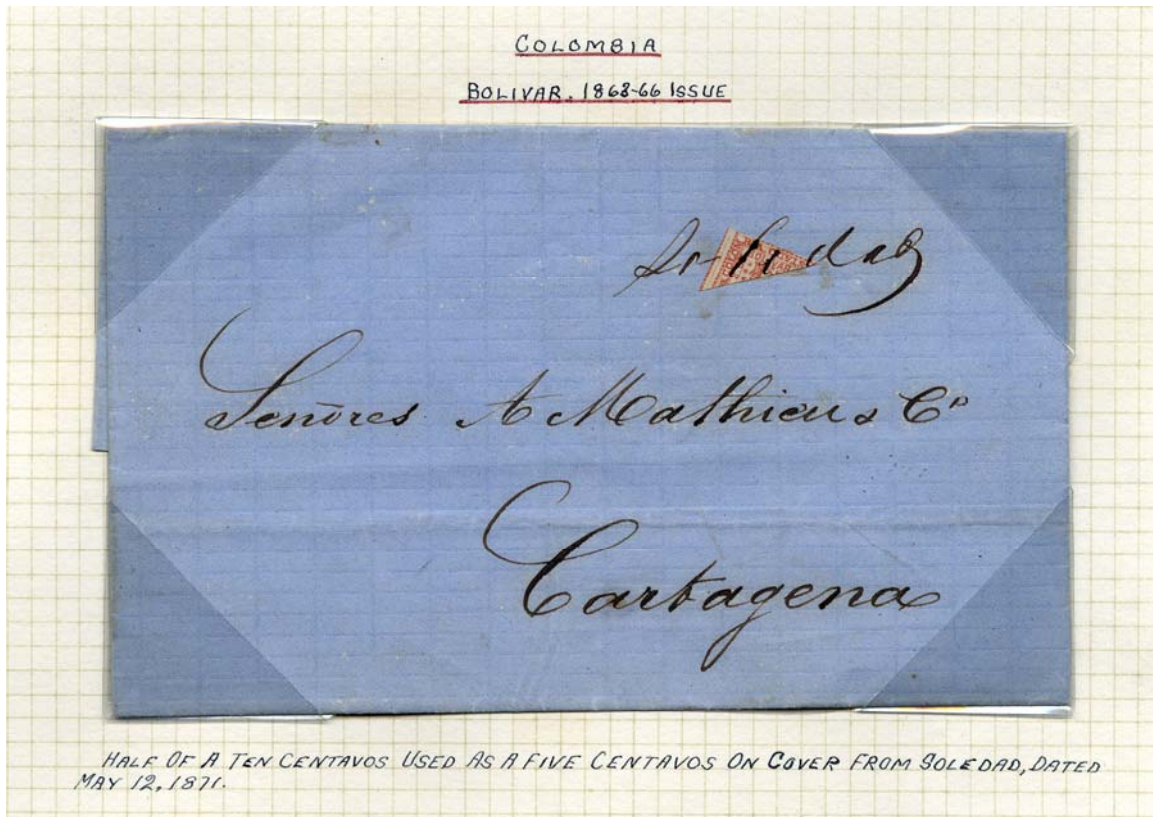 COLOMBIA
BOLIVAR. 1863-66 ISSUE
Señores A Mathieu & Cª
Cartagena
HALF OF A TEN CENTAVOS USED AS A FIVE CENTAVOS ON COVER FROM SOLEDAD, DATED
MAY 12, 1871.